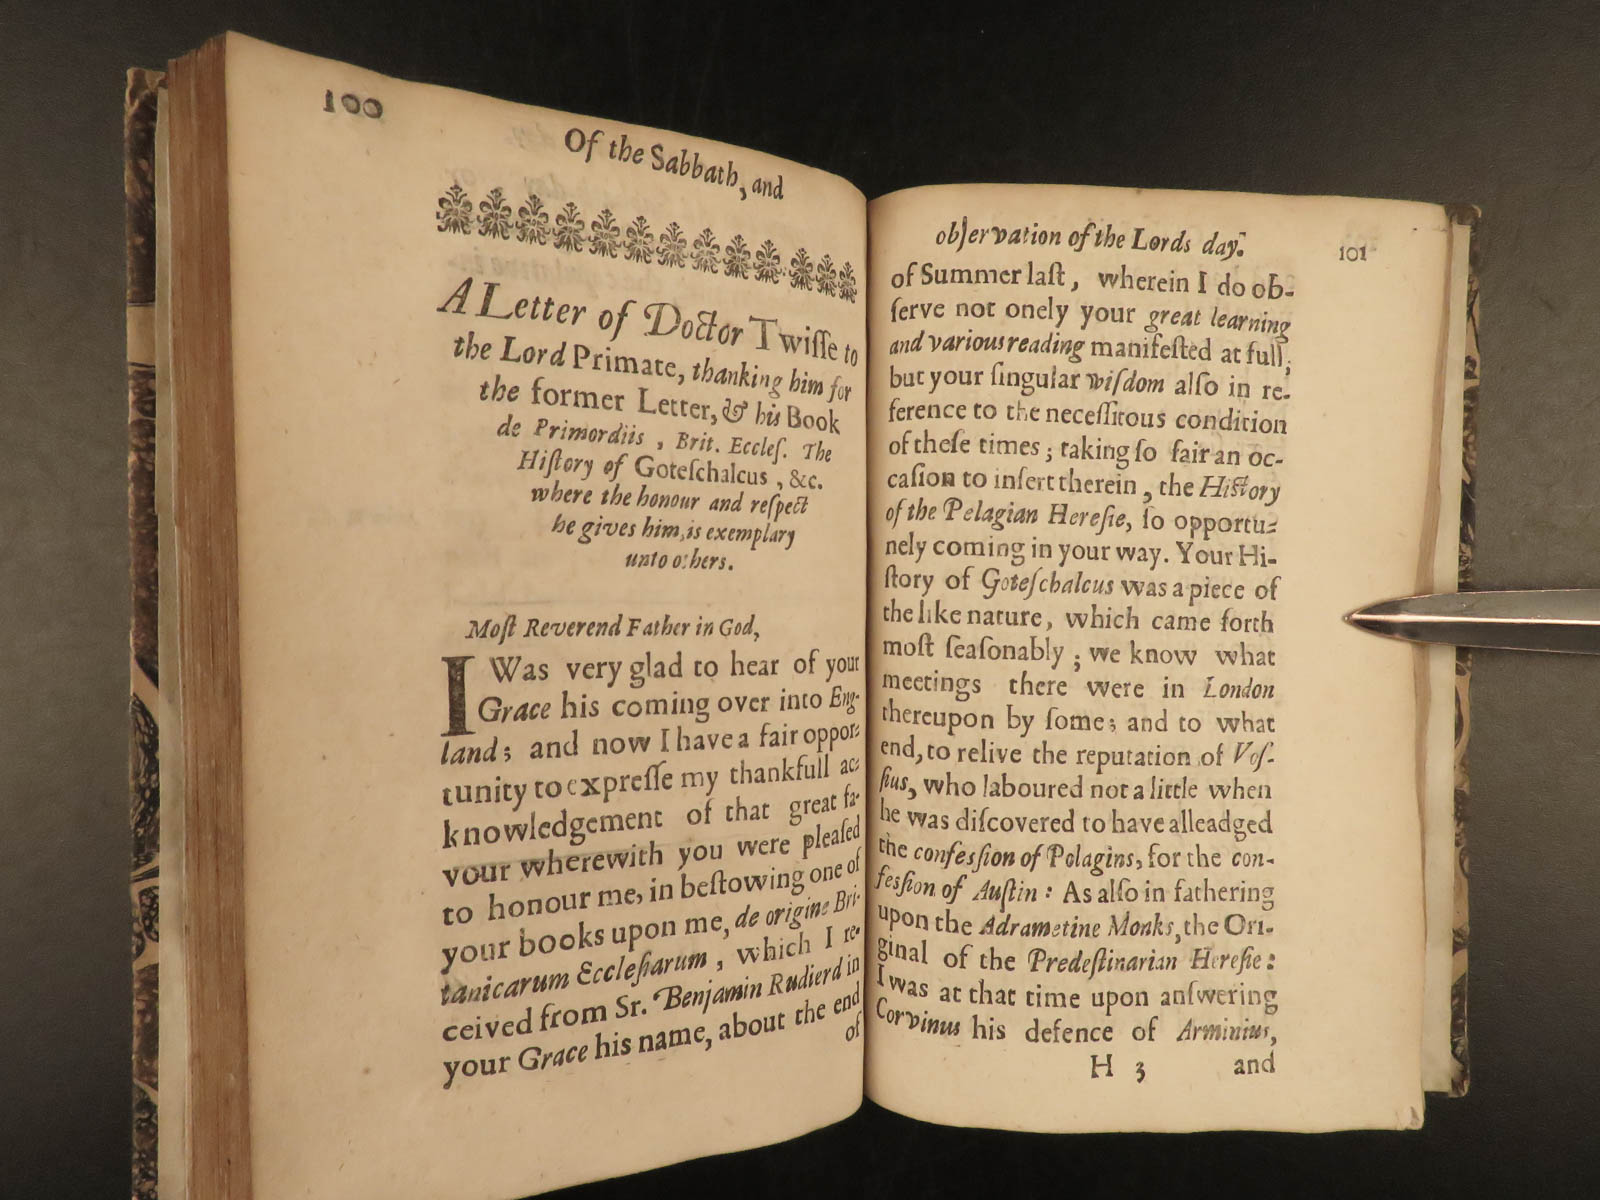 100
Of the Sabbath, and
A Letter of Doctor Twiſſe to
the Lord Primate, thanking him for
the former Letter, & his Book
de Primordiis, Brit. Eccleſ. The
Hiſtory of Goteſchalcus, &c.
where the honour and reſpect
he gives him, is exemplary
unto others.
Moſt Reverend Father in God,
I Was very glad to hear of your
Grace his coming over into Eng-
land; and now I have a fair oppor-
tunity to expreſſe my thankfull ac-
knowledgement of that great fa-
vour wherewith you were pleaſed
to honour me, in beſtowing one of
your books upon me, de origine Bri-
tanicarum Eccleſiarum, which I re-
ceived from Sr. Benjamin Rudierd in
your Grace his name, about the end
of
obſervation of the Lords day.
101
of Summer laſt, wherein I do ob-
ſerve not onely your great learning
and various reading manifeſted at full,
but your ſingular wiſdom alſo in re-
ference to the neceſſitous condition
of theſe times; taking ſo fair an oc-
caſion to inſert therein, the Hiſtory
of the Pelagian Hereſie, ſo opportu-
nely coming in your way. Your Hi-
ſtory of Goteſchalcus was a piece of
the like nature, which came forth
moſt ſeaſonably; we know what
meetings there were in London
thereupon by ſome; and to what
end, to relive the reputation of Voſ-
ſius, who laboured not a little when
he was diſcovered to have alleadged
the confeſſion of Pelagins, for the con-
feſſion of Auſtin: As alſo in fathering
upon the Adrametine Monks, the Ori-
ginal of the Predeſtinarian Hereſie:
I was at that time upon anſwering
Corvinus his defence of Arminius,
H 3 and